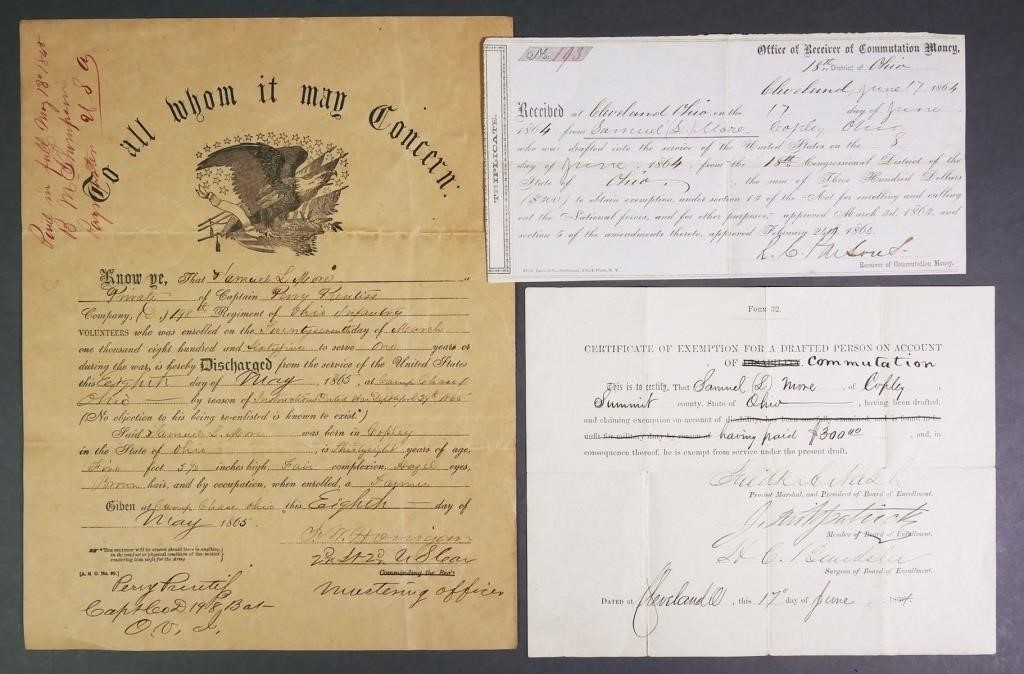 Paid in full May 13th 1865
Paymaster U S A
To all whom it may Concern.
Know ye, That Samuel L. More
Private of Captain Perry Prentiss
Company, (D.) 198th Regiment of Ohio Infantry
VOLUNTEERS who was enrolled on the day of March
one thousand eight hundred and Sixtyfive to serve One years or
during the war, is hereby Discharged from the service of the United States
this Eighth day of May, 1865, at Camp Chase
Ohio by reason of Instructions War Dept April 29th 1865
(No objection to his being re-enlisted is known to exist.*)
Said Samuel L. More was born in Copley
in the State of Ohio, is Thirtyeight years of age,
Five feet inches high, Fair complexion, Hazel eyes,
Brown hair, and by occupation, when enrolled, a Farmer
Given at Camp Chase Ohio this Eighth day of
May 1865.
*This sentence will be erased should there be anything
in the conduct or physical condition of the soldier
rendering him unfit for the Army.
[A. G. O. No. 99.]
2d Lt 2d U S Cav
Commanding the Reg't
Mustering officer
Perry Prentiss
Capt Co D 198 Bat
O. V. I.
TRIPLICATE.
No. 193
Office of Receiver of Commutation Money,
18th District of Ohio
Cleveland, June 17, 1864
Received at Cleveland Ohio, on the 17 day of June
1864, from Samuel (L) More Copley Ohio
who was drafted into the service of the United States on the 8
day of June, 1864, from the 18th Congressional District of the
State of Ohio, the sum of Three Hundred Dollars
($300) to obtain exemption, under section 13 of the "Act for enrolling and calling
out the National forces, and for other purposes," approved March 3d, 1863, and
section 5 of the amendments thereto, approved February 24th, 1864.
R. C. Parsons
Receiver of Commutation Money.
FORM 32.
CERTIFICATE OF EXEMPTION FOR A DRAFTED PERSON ON ACCOUNT
OF DISABILITY. Commutation
This is to certify, That Samuel (L) More, of Copley
Summit county, State of Ohio, having been drafted,
and claiming exemption on account of
unfit for military duty by reason of having paid $300 00, and, in
consequence thereof, he is exempt from service under the present draft.
Provost Marshal, and President of Board of Enrollment.
Member of Board of Enrollment.
Surgeon of Board of Enrollment.
DATED at Cleveland O, this 17th day of June, 1864.